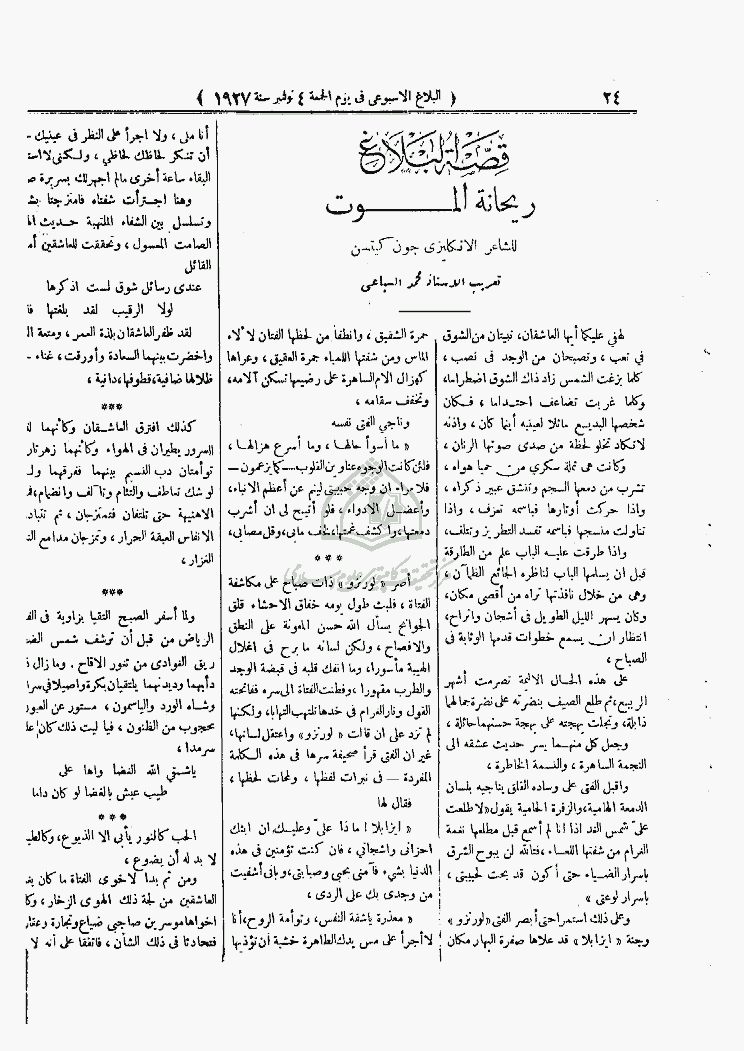 ٢٤
( البلاغ الاسبوعى فى يوم الجمعة ٤ نوفمبر سنة ١٩٢٧ )
قصة البلاغ
ريحانة المـــوت
للشاعر الانكليزى جون كيتس
تعريب الاستاذ محمد السباعى
لهفى عليكما أيها العاشقان، تبيتان من الشوق
فى تعب ، وتصبحان من الوجد فى نصب ،
كلما بزغت الشمس زاد ذاك الشوق اضطراما،
وكلما غربت تضاعف احتداما ، فكان
شخصها البديع ماثلا لعينيه أينما كان ، واذنه
لا تكاد تخلو لحظة من صدى صوتها الرنان ،
وكانت هى ثملة سكرى من حميا هواه ،
تشرب من دمعها السجم وتنشق عبير ذكراه ،
واذا حركت أوتارها فباسمه تعزف ، واذا
تناولت منسجها فباسمه تفسد التطريز وتتلف،
واذا طرقت عليه الباب علم من الطارقة
قبل ان يسلمها الباب لناظره الجائع الظمآن ،
وهى من خلال نافذتها تراه من أقصى مكان،
وكان يسهر الليل الطويل فى أشجان واتراح،
انتظار ان يسمع خطوات قدمها الوثابة فى
الصباح ،
على هذه الحال الاليمة تصرمت أشهر
الربيع، ثم طلع الصيف بنضرته على نضرة جمالها
ذابلة، وتجلت بهجته على بهجة حسنهما حائلة ،
وجعل كل منهما يسر حديث عشقه الى
النجمة الساهرة ، والنسمة الخاطرة ،
واقبل الفتى على وساده القلق يناجيه بلسان
الدمعة الهامية، والزفرة الحامية يقول « لا طلعت
علىّ شمس الغد اذا انا لم أسمع قبل مطلعها نغمة
الغرام من شفتها اللعساء ، فتالله لن يبوح الشرق
باسرار الضياء حتى أكون قد بحت لحبيبتى ،
باسرار لوعتى »
وعلى ذلك استمرا حتى أبصر الفتى «لورنزو»
وجنة « ايزابلا » قد علاها صفرة البهار مكان
حمرة الشفيق ، وانطفأ من لحظها الفتان لألاء
الماس ومن شفتها اللمياء جمرة العقيق ، وعراها
كهزال الام الساهرة على رضيعها تسكن آلامه،
وتخفف سقامه ،
وناجى الفتى نفسه
« ما أسوأ حالها ، وما أسرع هزالها ،
فلئن كانت الوجوه عناوين القلوب—كما يزعمون—
فلا مراء ان وجه حبيبتى لينم عن أعظم الانباء،
وأعضل الادواء ، فلو أتيح لى ان أشرب
دمعتها، واكشف غمتها، لخف مابى، وقل مصابى،
* * *
أصر « لورنزو » ذات صباح على مكاشفة
الفتاة ، فلبث طول يومه خفاق الاحشاء قلق
الجوانح يسأل الله حسن المعونة على النطق
والافصاح ، ولكن لسانه ما برح فى اغلال
الهيبة مأسورا، وما انفك قلبه فى قبضة الوجد
والطرب مقهورا ، وفطنت الفتاة الى سره ففاتحته
القول ونار الغرام فى خدها تلتهب التهابا، ولكنها
لم تزد على ان قالت « لورنزو » واعتقل لسانها،
غير ان الفتى قرأ صحيفة سرها فى هذه الكلمة
المفردة — فى نبرات لفظها ، ولمحات لحظها ،
فقال لها
« ايزابلا ! ماذا علىّ وعليك ان ابثك
احزانى واشجانى ، فان كنت تؤمنين فى هذه
الدنيا بشىء فآمنى بحبى وصبابتى، وبانى أشفيت
من وجدى بك على الردى ،
« معذرة ياشقة النفس، وتوأمة الروح، أنا
لا أجرأ على مس يدك الطاهرة خشية ان تؤذيها
أنا ملى ، ولا اجرأ على النظر فى عينيك
أن تنكر لحاظك لحاظي ، ولكنى لا
البقاء ساعة أخرى مالم اجهر لك بسريرة
وهنا اجترأت شفتاه فامتزجتا
وتسلسل بين الشفاه الملتهبة حديث
الصامت المعسول ، وتحققت للعاشقين
القائل
عندى رسائل شوق لست اذكرها
لولا الرقيب لقد بلغتها
لقد ظفر العاشقان بلذة العمر ، ومتعة
واخضرت بينهما السعادة وأورقت ، غناء
ظلالها ضافية، قطوفها، دانية ،
***
كذلك افترق العاشقان وكأنهما
السرور يطيران فى الهواء وكأنهما زهرتان
توأمتان دب النسيم بينهما ففرقهما
لوشك تعاطف والتئام وتآلف وانضمام،
الاهنيهة حتى تلتفان فتمتزجان ، ثم
الانفاس العبقة الحرار ، وتمزجان مدامع
الغزار ،
***
ولما أسفر الصبح التقيا بزاوية فى
الرياض من قبل أن ترشف شمس
ريق الغوادى من ثنور الاقاح ، وما زال
دأبهما وديدنهما يلتقيان بكرة واصيلا فى
وشاه الورد والياسمون ، مستور عن
محجوب من الظنون ، فيا ليت ذلك كان
سرمدا ،
ياشتى الله الفضا واها على
طيب عيش بالغضا لو كان داما
* * *
الحب كالنور يأبى الا الذيوع ،
لا بد له أن يضوع ،
ومن ثم بدا لاخوى الفتاة ما كان
العاشقين من لجة ذلك الهوى الزخار ،
اخواها موسرين صاحبى ضياع وتجارة
فتحادثا فى ذلك الشأن ، فاتفقا على أنه لا